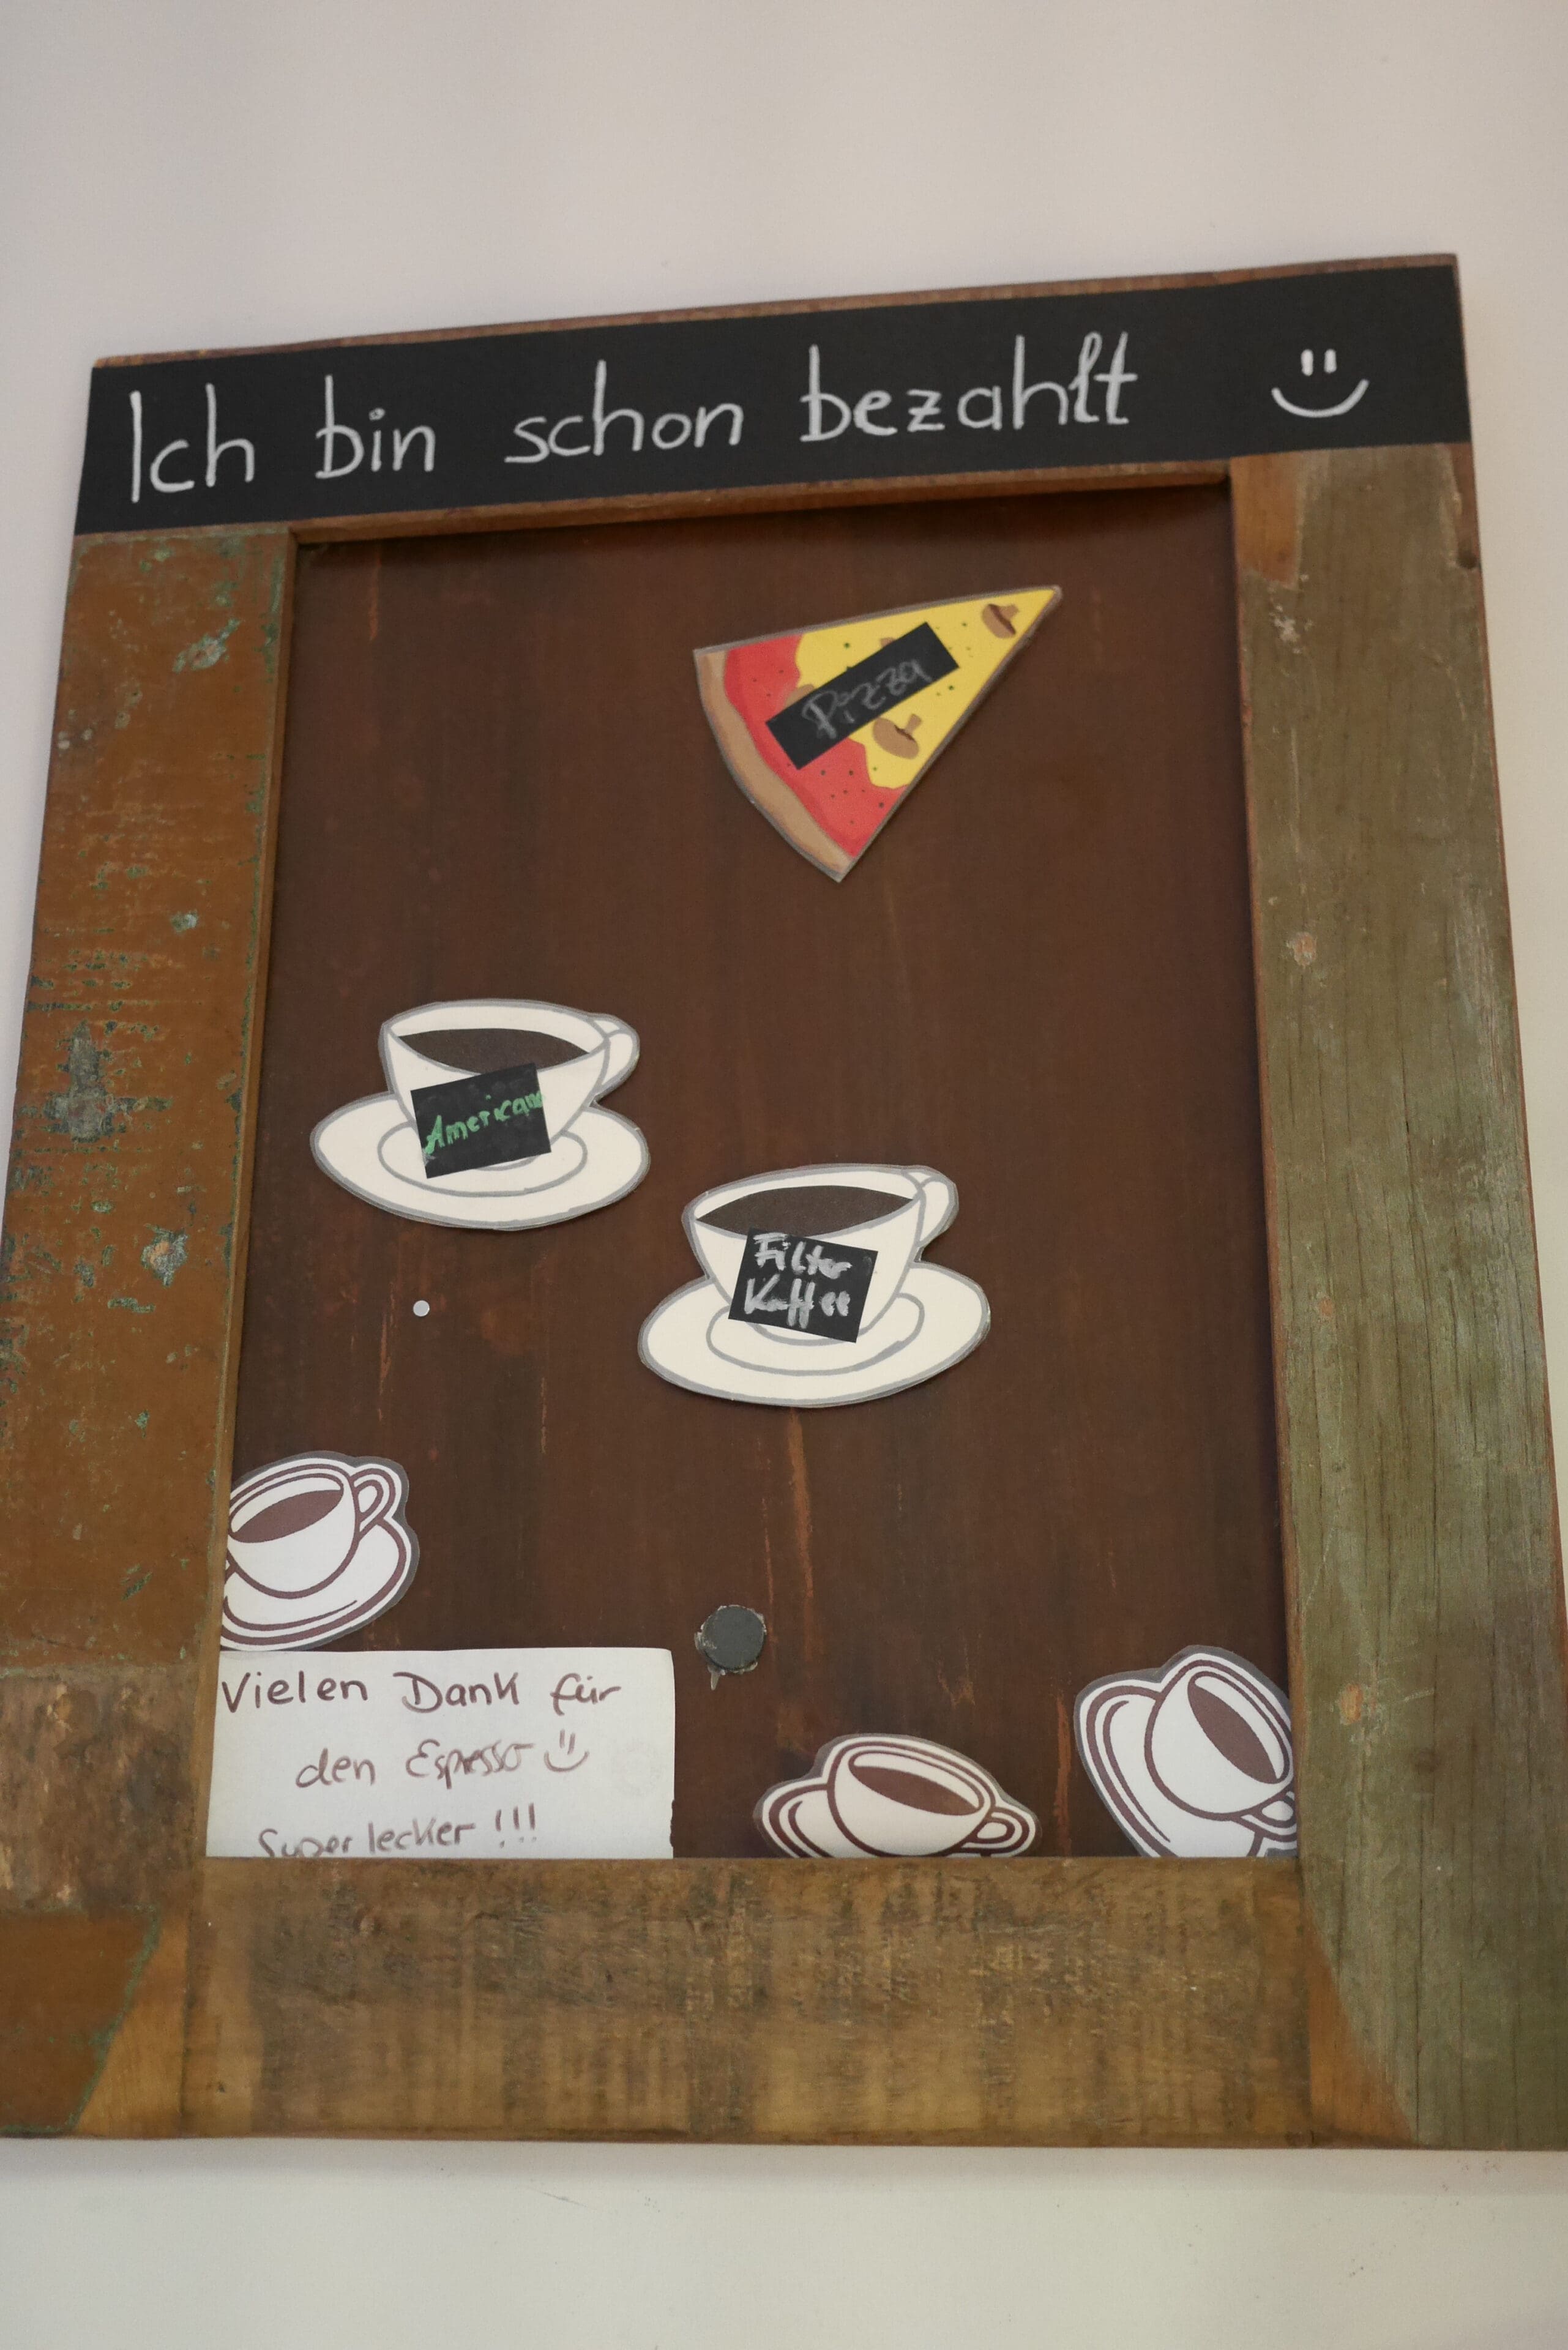 Ich bin schon bezahlt
Pizza
Americano
Filter
Kaffee
Vielen Dank für
den Espresso
Super lecker !!!